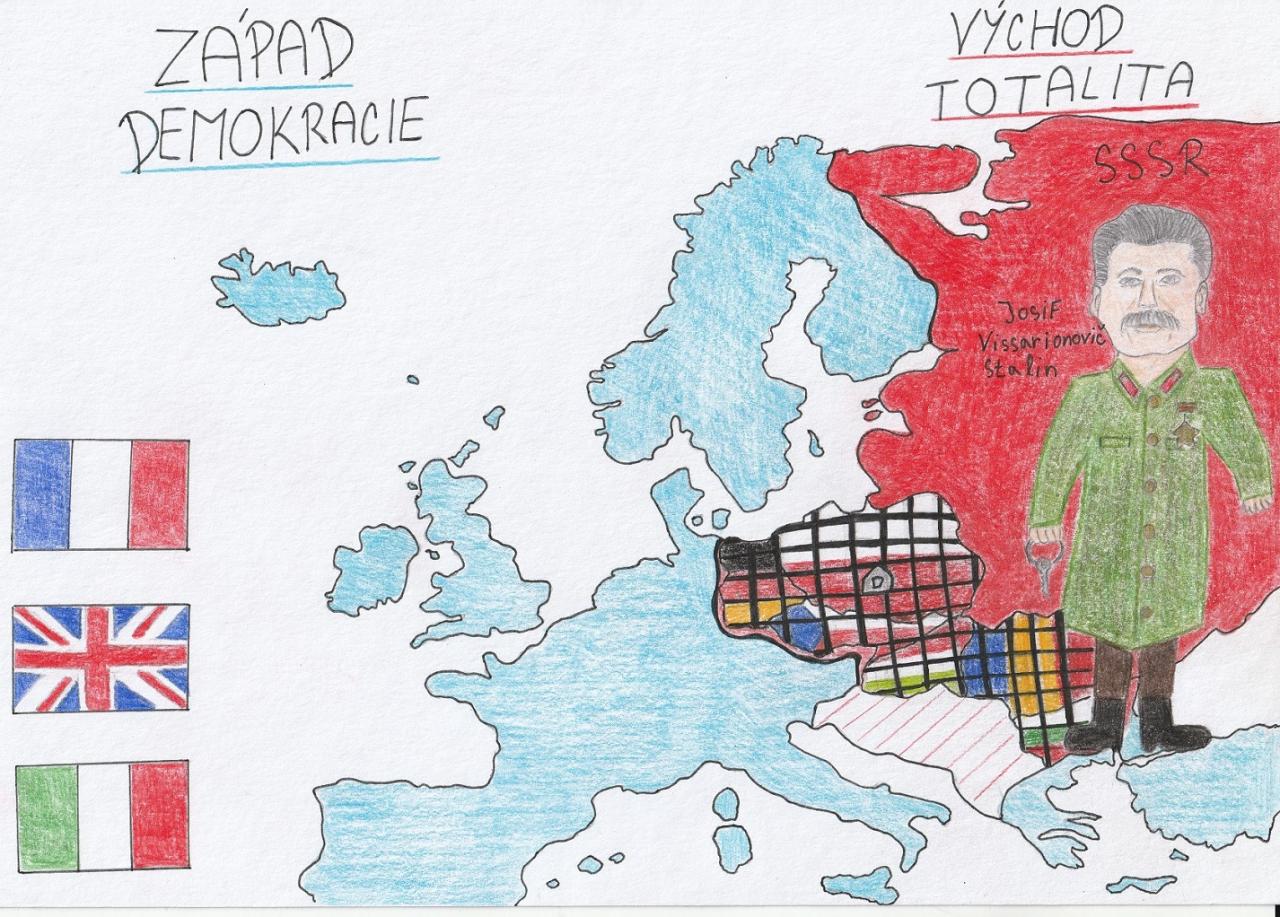 ZÁPAD
DEMOKRACIE
VÝCHOD
TOTALITA
SSSR
Josif
Vissarionovič
Stalin
D